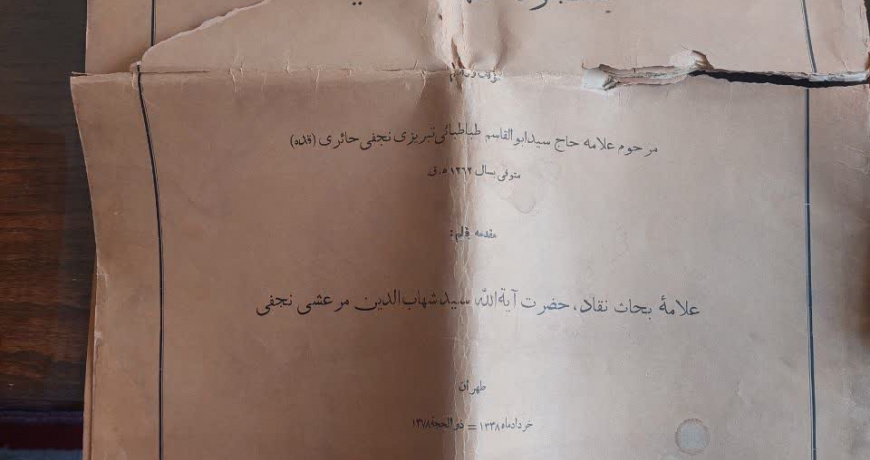 مرحوم علامه حاج سیدابوالقاسم طباطبائی تبریزی نجفی حائری (قده)
متوفی بسال ۱۳۶۲ ه.ق
مقدمه قلم:
علامهٔ بحاث نقاد، حضرت آیةالله سیدشهاب‌الدین مرعشی نجفی
طهران
خردادماه ۱۳۳۸ = ذوالحجة ۱۳۷۸